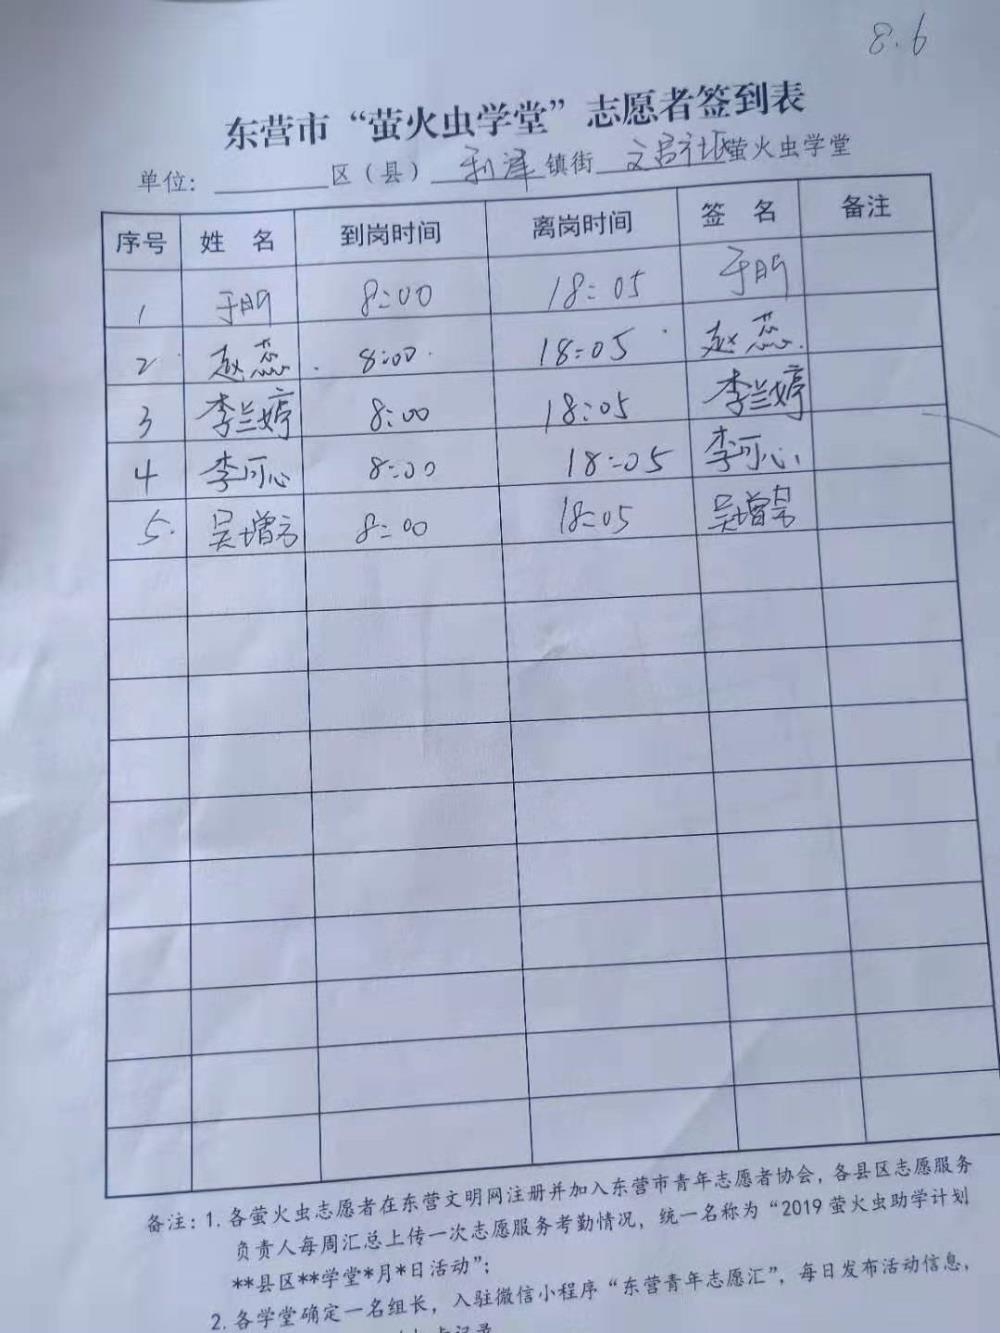 8.6
东营市“萤火虫学堂”志愿者签到表
单位：________区（县）利津镇街 文昌社区萤火虫学堂
序号 姓 名 到岗时间 离岗时间 签 名 备注
1 于明 8:00 18:05 于明
2 赵蕊 8:00 18:05 赵蕊
3 李兰婷 8:00 18:05 李兰婷
4 李可心 8:00 18:05 李可心
5. 吴增 8:00 18:05 吴增
备注：1. 各萤火虫志愿者在东营文明网注册并加入东营市青年志愿者协会，各县区志愿服务
负责人每周汇总上传一次志愿服务考勤情况，统一名称为“2019萤火虫助学计划
**县区**学堂*月*日活动”；
2. 各学堂确定一名组长，入驻微信小程序“东营青年志愿汇”，每日发布活动信息，
记录